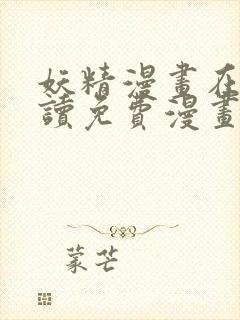 妖精漫畫在
讀免費漫畫
蒙芒